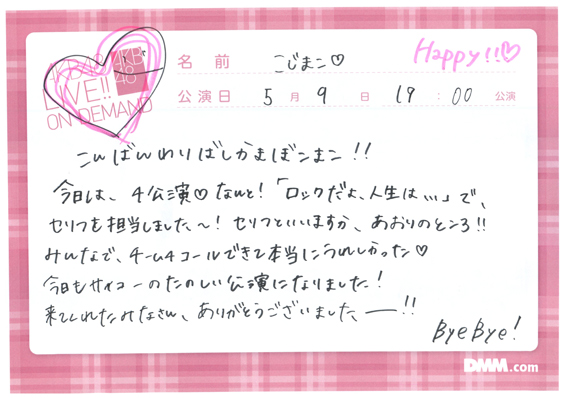 AKB48
LIVE!!
ON DEMAND
名前 こじまこ♡
Happy!!♡
公演日 5月9日 19:00公演
こんばんわりばしかまぼこまこ!!
今日は、4公演♡なんと!「ロックだよ、人生は…」で、
セリフを担当しました〜! セリフといいますか、あおりのところ!!
みんなで、チーム4コールできて本当にうれしかった♡
今日もサイコーのたのしい公演になりました!
来てくれたみなさん、ありがとうございました、ー!!
ByeBye!
DMM.com